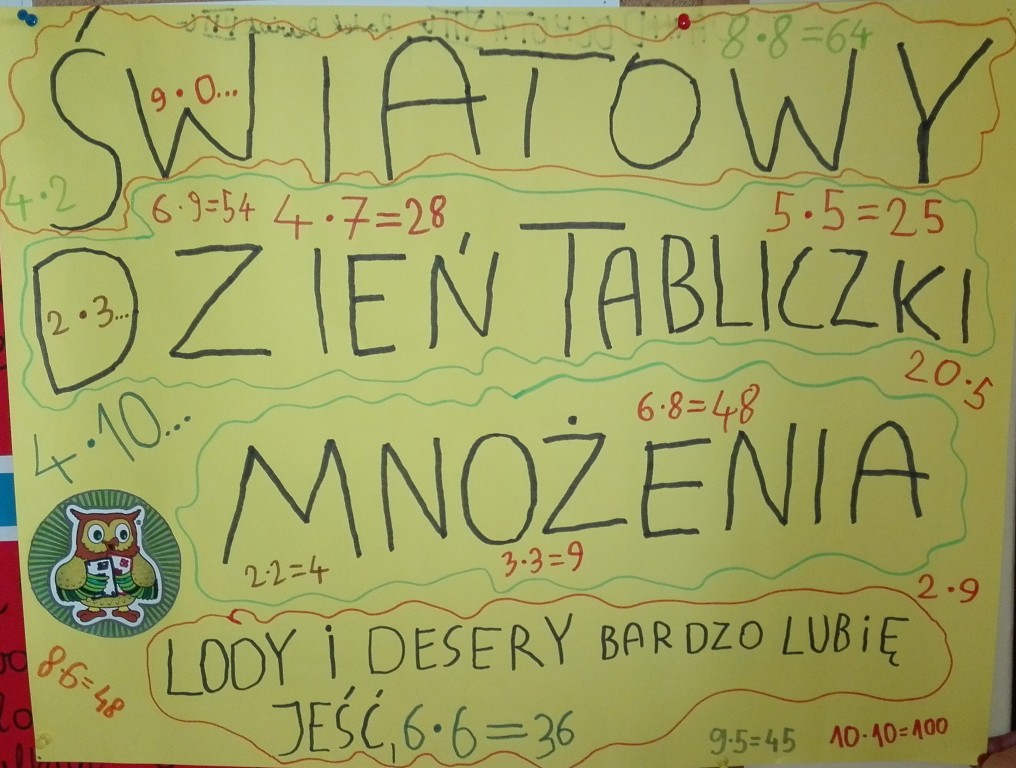 8·8=64
ŚWIATOWY
9·0...
4·2
6·9=54 4·7=28 5·5=25
DZIEŃ TABLICZKI
2·3...
20·5
4·10...
6·8=48
MNOŻENIA
2·2=4 3·3=9
2·9
LODY i DESERY BARDZO LUBiĘ
8·6=48
JEŚĆ, 6·6=36
9·5=45 10·10=100